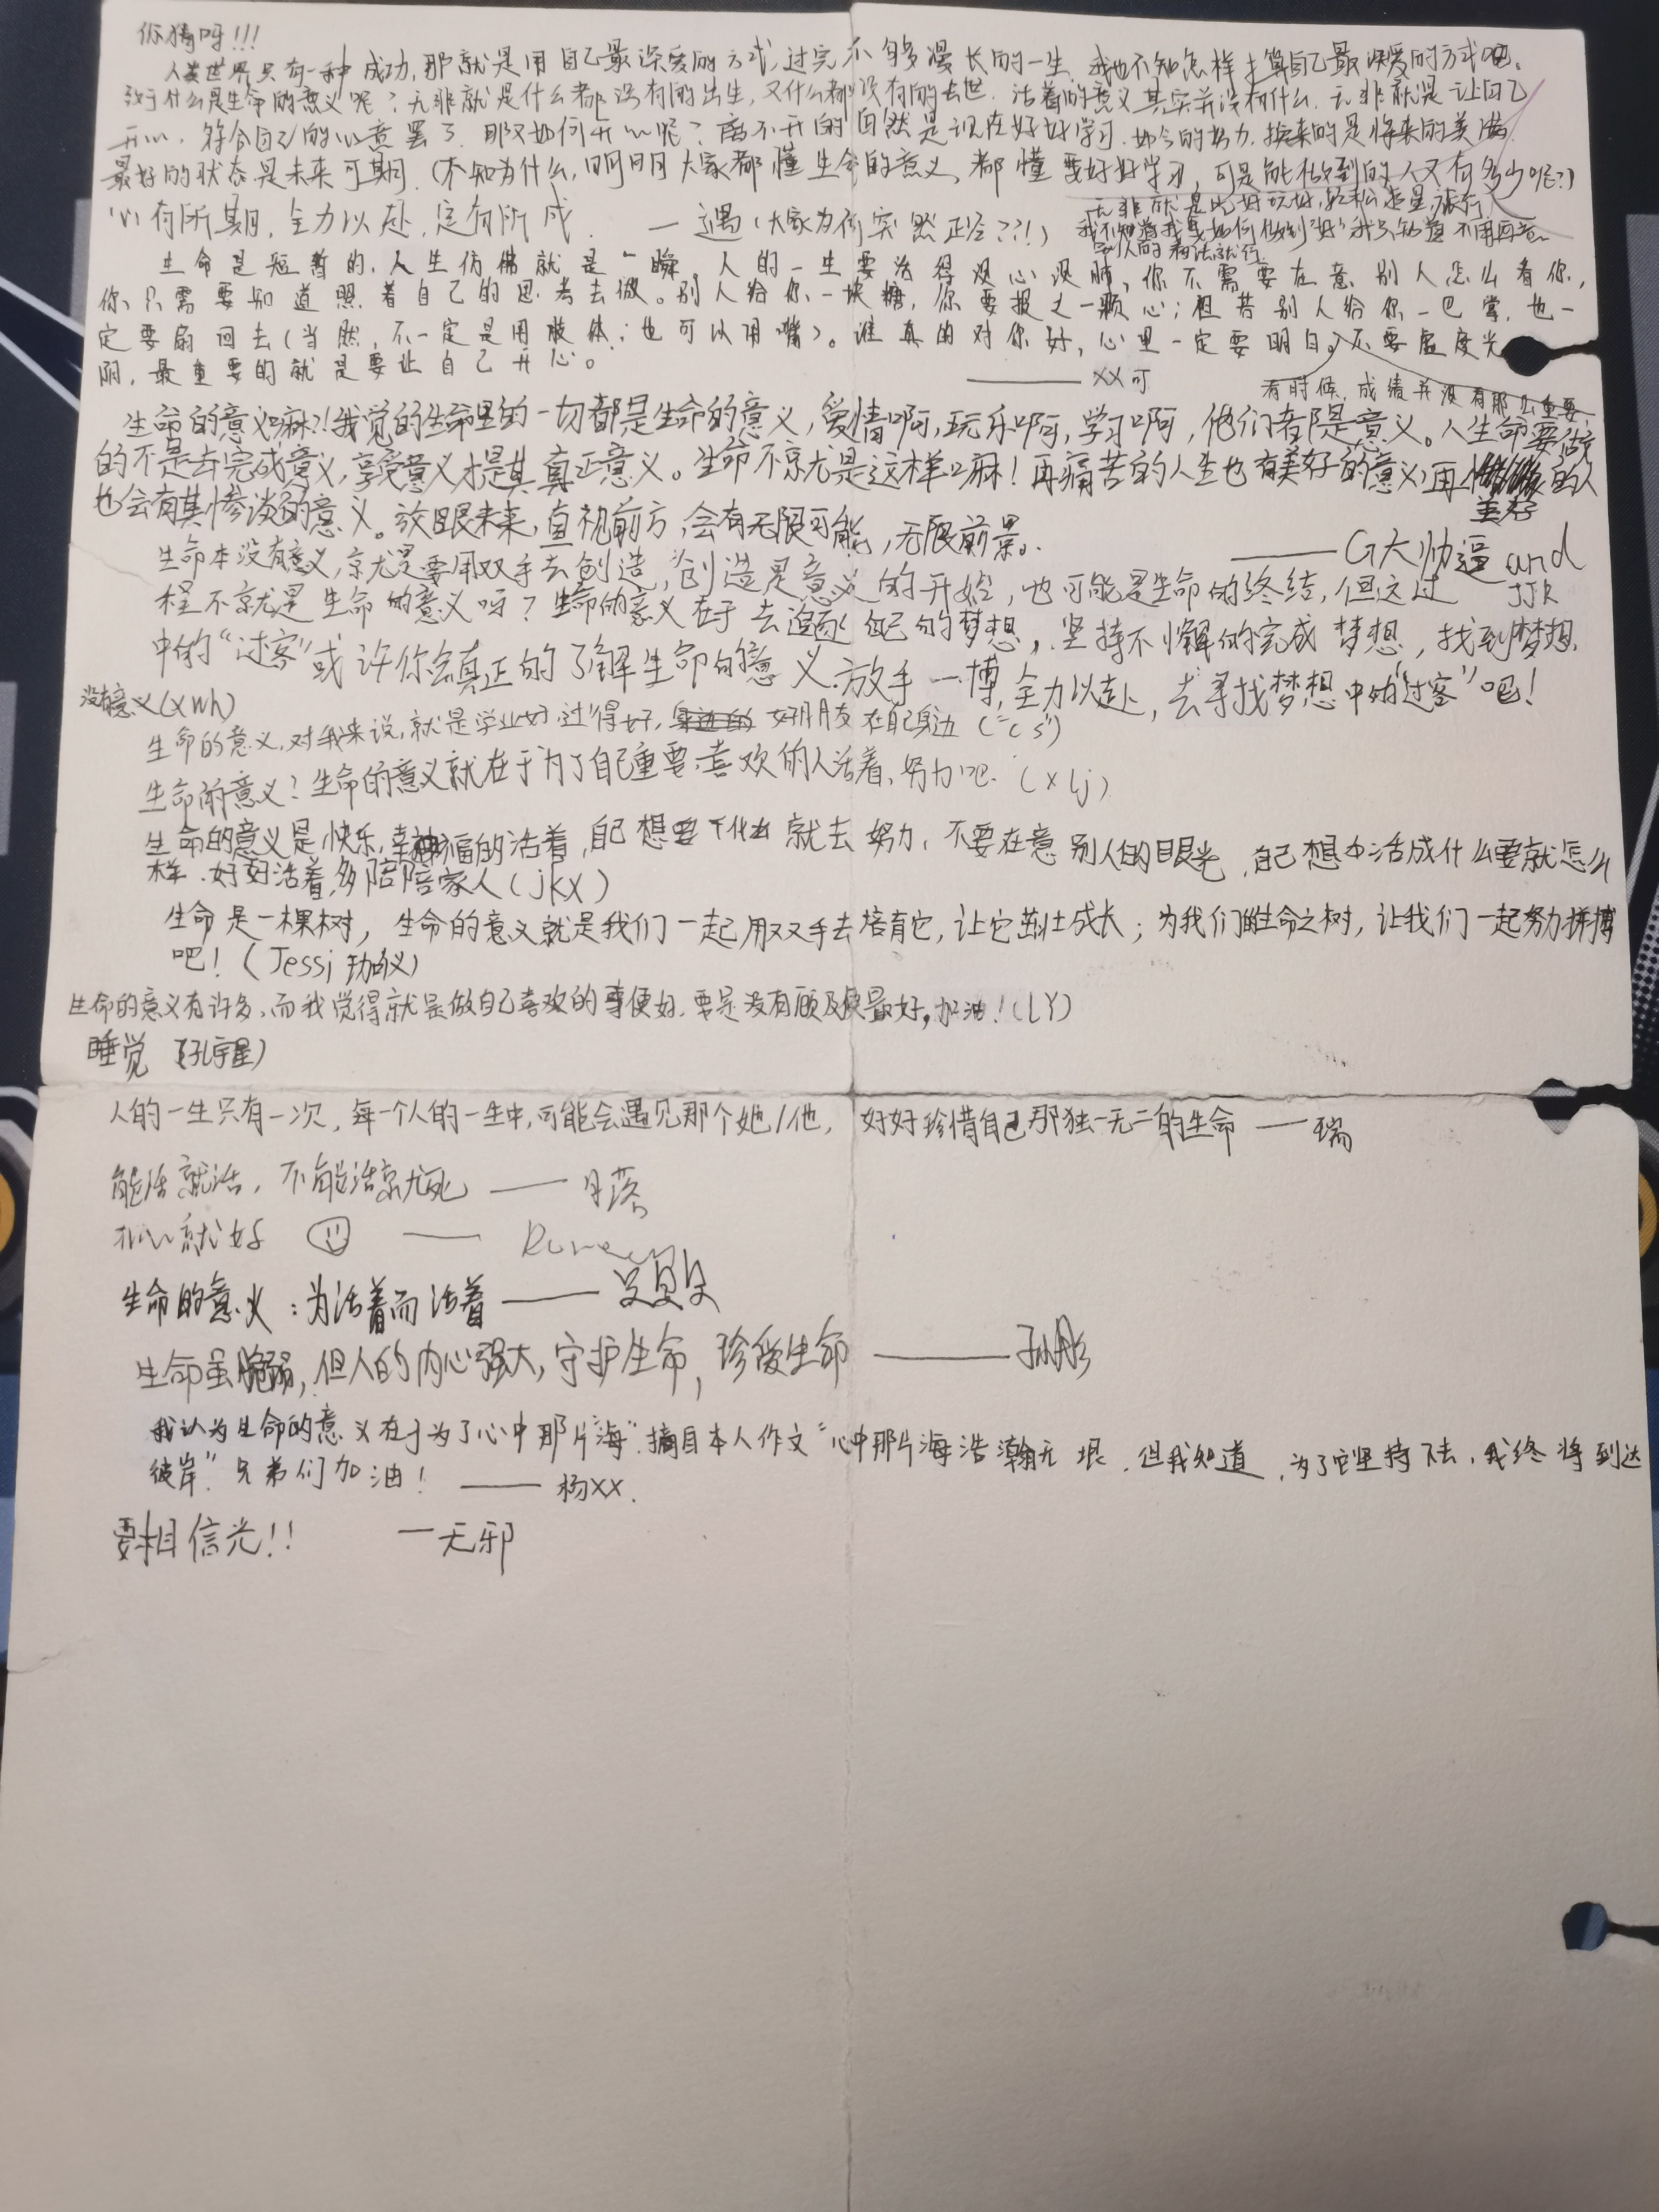 你猜呀!!!
人类世界只有一种成功,那就是用自己最深爱的方式,过完不够漫长的一生,我也不知怎样才算自己最深爱的方式吧。
致于什么是生命的意义呢?无非就是什么都没有的出生,又什么都没有的去世.活着的意义其实并没有什么.无非就是让自己
开心.符合自己的心意罢了.那又如何开心呢?离不开的自然是现在好好学习.如今的努力.换来的是将来的美满.
最好的状态是未来可期.(不知为什么,明明大家都懂生命的意义,都懂要好好学习,可是能做到的人又有多少呢?)
心有所期,全力以赴,定有所成. —遇(大家为何突然正经??!)
无非就是吃好玩好,轻松追星,旅行
我不知道我要如何做到"好"我只知道不用在意
别人的看法就行
生命是短暂的,人生仿佛就是一瞬,人的一生要活得没心没肺,你不需要在意别人怎么看你,
你只需要知道照着自己的思考去做。别人给你一块糖,你要报之一颗心;但若别人给你一巴掌,也一
定要扇回去(当然,不一定是用肢体;也可以用嘴)。谁真的对你好,心里一定要明白。不要虚度光
阴,最重要的就是要让自己开心。 ——XX可
有时候,成绩并没有那么重要.
生命的意义嘛?!我觉的生命里的一切都是生命的意义,爱情啊,玩乐啊,学习啊,他们都是意义。人生命要做
的不是去完成意义,享受意义才是其真正意义。生命不就是这样嘛!再痛苦的人生也有美好的意义,再美好的人
也会有其惨淡的意义。放眼未来,直视前方,会有无限可能,无限前景。
——G大帅逼and
JJR
生命本没有意义,就是要用双手去创造,创造是意义的开始,也可能是生命的终结,但这过
程不就是生命的意义吗?生命的意义在于去追逐自己的梦想,坚持不懈的完成梦想,找到梦想
中的"过客"或许你会真正的了解生命的意义.放手一博,全力以赴,去寻找梦想中的"过客"吧!
没有意义(xwh)
生命的意义,对我来说,就是学业好,过得好,好朋友在自己身边("cs")
生命的意义?生命的意义就在于为了自己重要,喜欢的人活着,努力吧.(xlj)
生命的意义是快乐,幸福的活着,自己想要什么就去努力,不要在意别人的眼光,自己想要活成什么要就怎么
样.好好活着,多陪陪家人(jkx)
生命是一棵树,生命的意义就是我们一起用双手去培育它,让它茁壮成长;为我们的生命之树,让我们一起努力拼搏
吧!(Jessi)
生命的意义有许多,而我觉得就是做自己喜欢的事便好.要是没有顾及便最好,加油!(LY)
睡觉 (孔宇星)
人的一生只有一次,每一个人的一生中,可能会遇见那个她/他,好好珍惜自己那独一无二的生命 ——瑞
能活就活,不能活就死 ——月落
开心就好 ——
生命的意义:为活着而活着 ——
生命虽脆弱,但人的内心强大,守护生命,珍爱生命 ——孙彤
我认为生命的意义在于为了心中那片"海".摘自本人作文"心中那片海浩瀚无垠.但我知道,为了它坚持下去,我终将到达
彼岸."兄弟们加油! ——杨XX.
要相信光!! —无邪